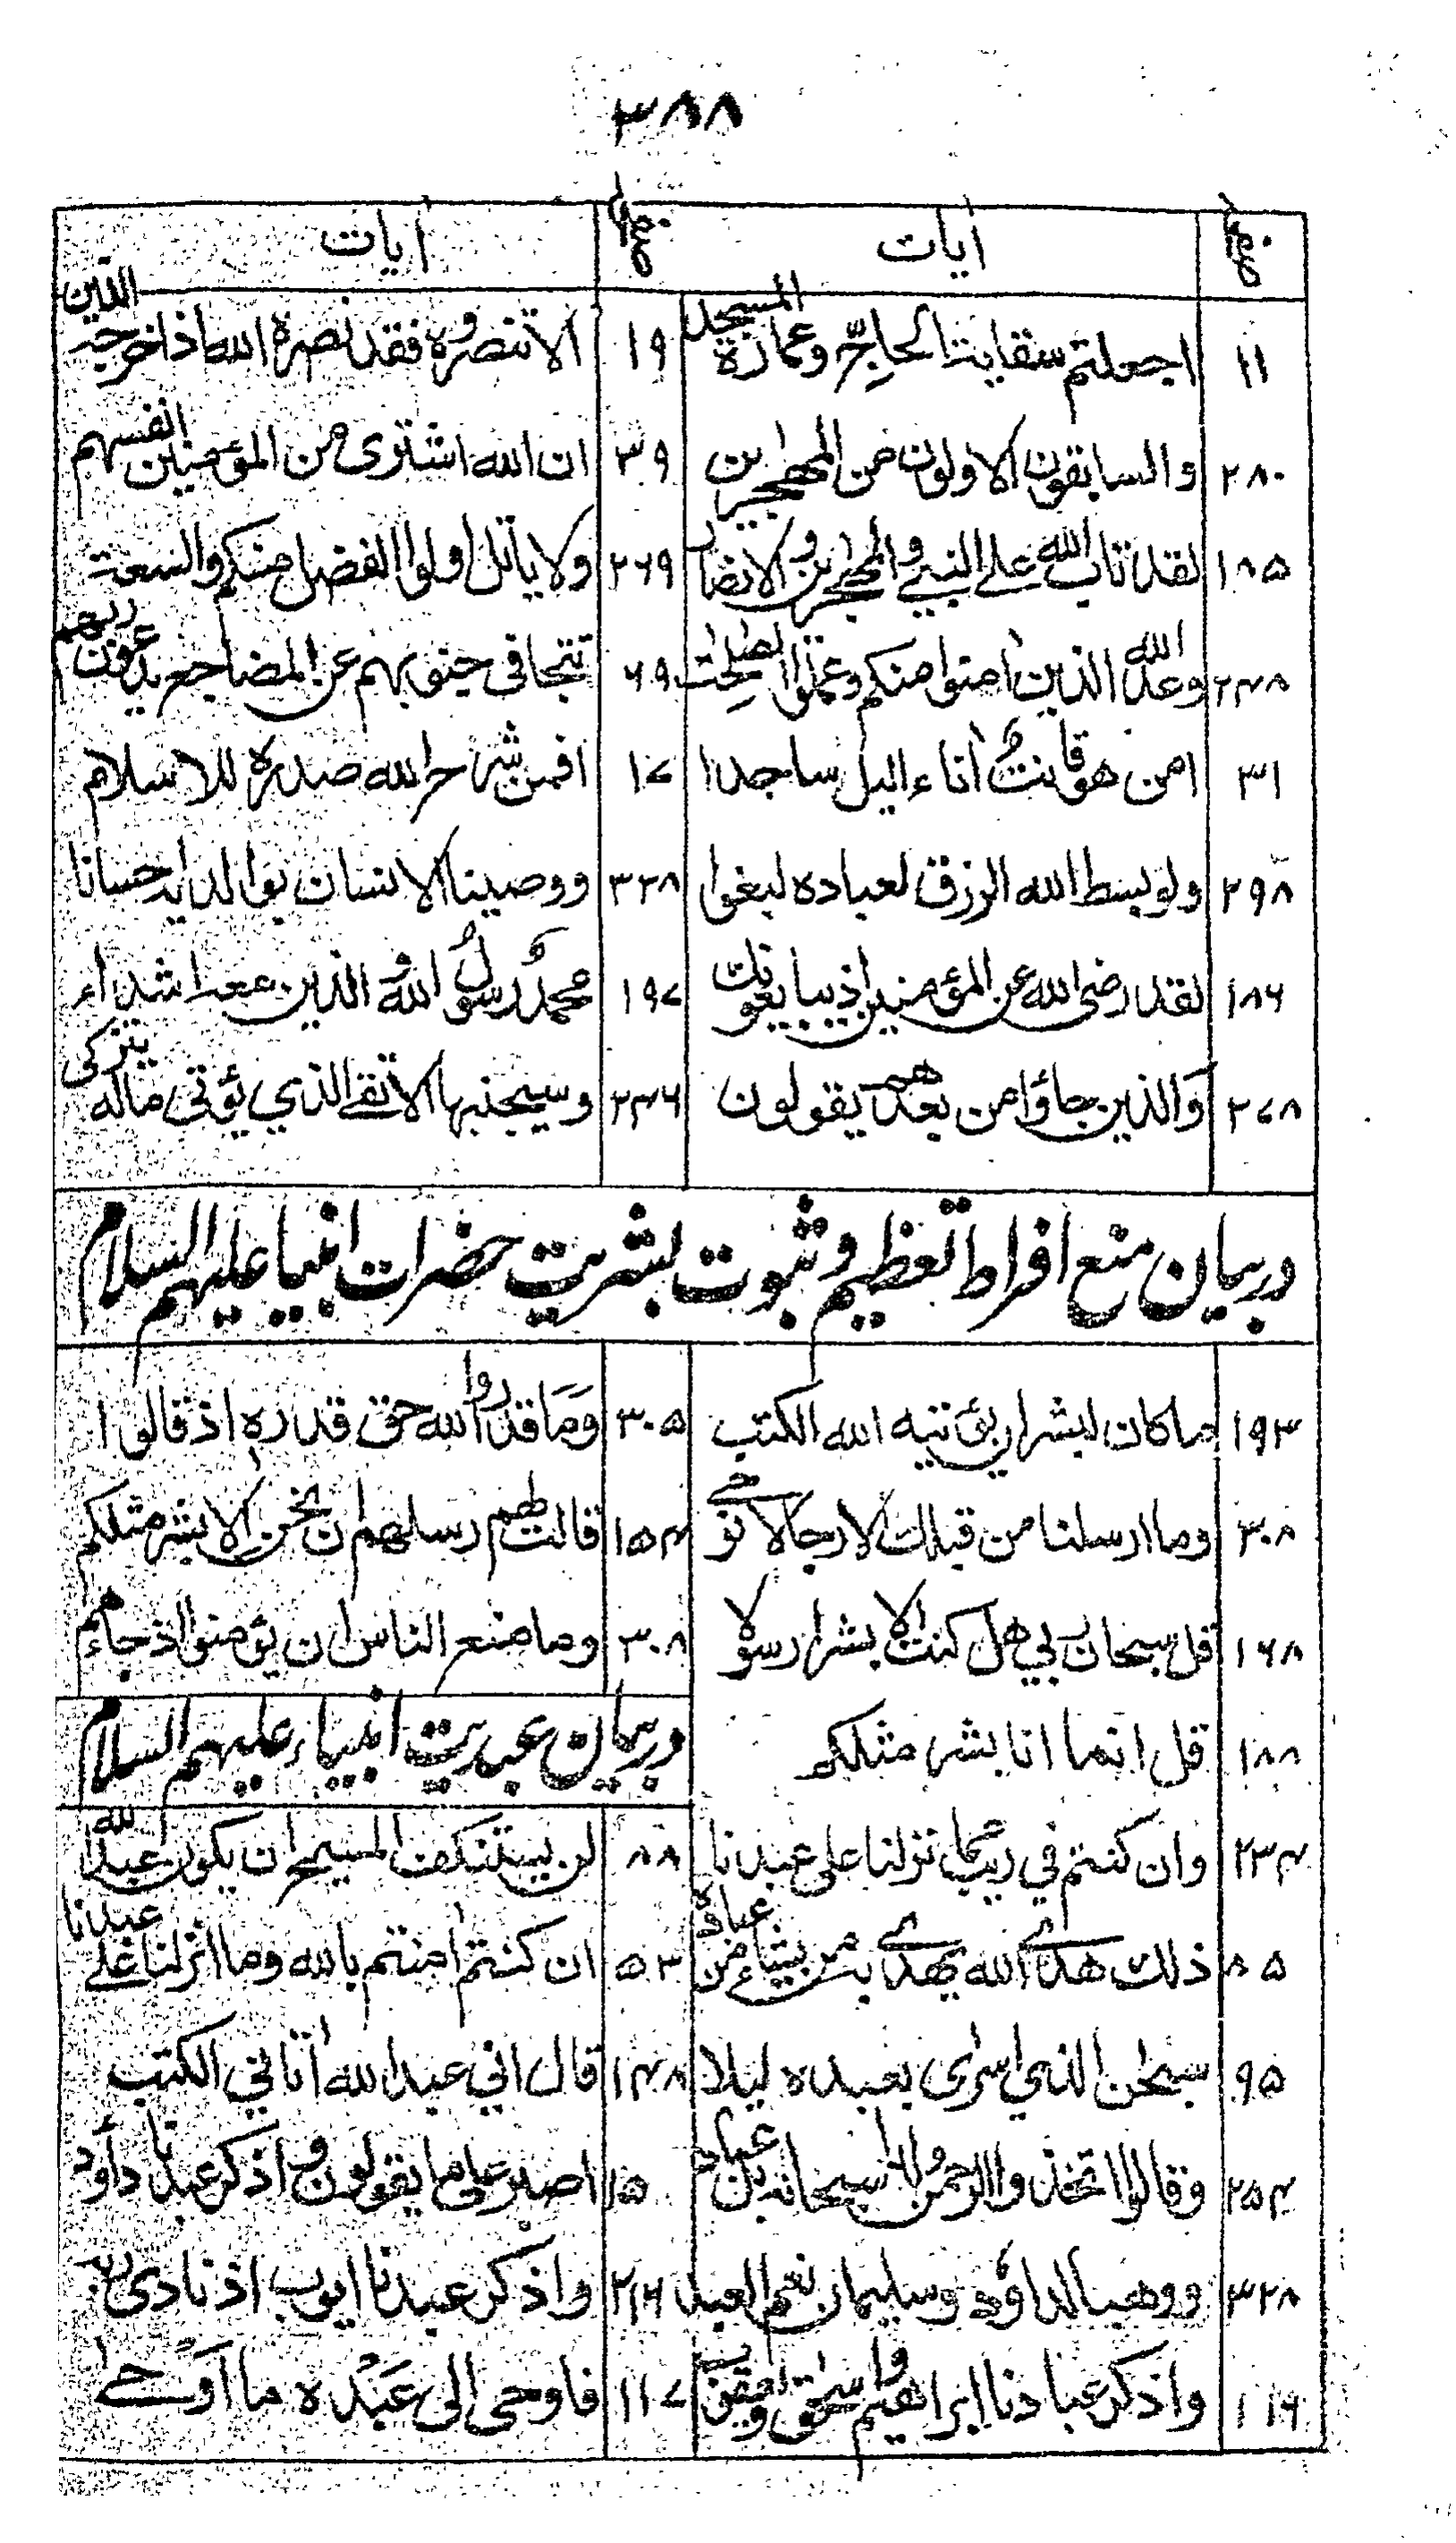 ۳۸۸
صفحہ آیات صفحہ آیات
۱۱ اجعلتم سقایت الحاجّ وعمارة المسجد ۱۹ الا تنصروه فقد نصره الله اذ اخرجه الذین
۲۸۰ والسابقون الاولون من المهجرین ۳۹ ان الله اشتری من المؤمنین انفسهم
۱۸۵ لقد تاب الله علی النبی والمهجرین والانصار ۲۶۹ ولا یاتل اولوا الفضل منکم والسعت
۲۴۸ وعد الله الذین امنوا منکم وعملوا الصلحت ۶۹ تتجافی جنوبهم عن المضاجع یدعون ربهم
۳۱ امن هو قانتٌ اناء الیل ساجدا ۱۷ افمن شرح الله صدره للاسلام
۲۹۸ ولو بسط الله الرزق لعباده لبغوا ۳۳۸ ووصینا الانسان بوالدیه احسانا
۱۸۶ لقد رضی الله عن المؤمنین اذ یبایعونك ۱۹۷ محمدٌ رسولُ اللهِ والذین معه اشداء
۲۷۸ وَالذین جاؤا من بعدهم یقولون ۲۴۶ وسیجنبها الاتقے الذي یؤتی ماله یتزکی
در بیان منع افراط تعظیم و ثبوت بشریت حضرات انبیا علیهم السلام
۱۹۳ ماکان لبشر ان یؤتیه الله الکتب ۳۰۵ وَمَا قدروا الله حق قدره اذ قالوا
۳۰۸ وما ارسلنا من قبلك الا رجالا نوحے ۱۵۴ قالت لهم رسلهم ان نحن الا بشر مثلکم
۱۶۸ قل سبحان ربي هل کنت الا بشرا رسولا ۳۰۸ وما منع الناس ان یؤمنوا اذ جاءهم
۱۸۸ قل انما انا بشر مثلکم
در بیان عبدیت انبیاء علیهم السلام
۲۳۴ وان کنتم في ریب مما نزلنا علی عبدنا ۸۸ لن یستنکف المسیح ان یکون عبدا لله
۸۵ ذلك هدے الله یهدے به من یشاء من عباده ۵۳ ان کنتم امنتم بالله وما انزلنا علے عبدنا
۹۵ سبحٰن الذي اسری بعبده لیلا ۱۴۸ قال اني عبد الله اتاني الکتب
۲۵۴ وقالوا اتخذ الرحمن ولدا سبحانه بل عباد ۱۵ اصبر علی ما یقولون واذکر عبدنا داؤد
۳۲۸ ووهبنا لداؤد وسلیمان نعم العبد ۲۱۶ واذکر عبدنا ایوب اذ نادی ربه
۱۱۶ واذکر عبادنا ابراهیم واسحٰق ویعقوب ۱۱۷ فاوحی الی عَبْده ما اَوحےٰ